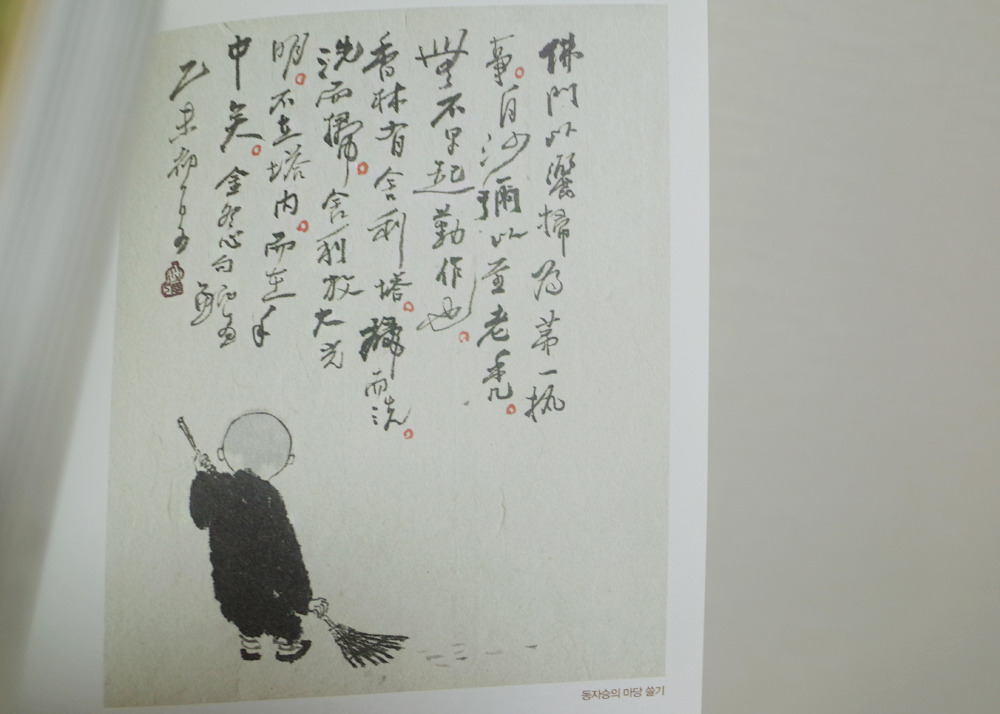 佛門以灑掃為苐一執
事。自沙彌以至老禿。
無不早起勤作也。
香林有舍利塔。掃而洗。
洗而掃。舍利放大光
明。不在塔内。而在手
中矣。金冬心句
乙未
동자승의 마당 쓸기